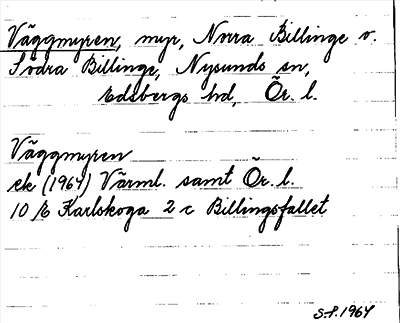 Väggmyren, myr, Norra Billinge o.
Södra Billinge, Nysunds sn,
Edsbergs hd, Ör. l.
Väggmyren
ek (1964) Värml. samt Ör. l.
10 E Karlskoga 2 c Billingsfallet
S.F. 1964